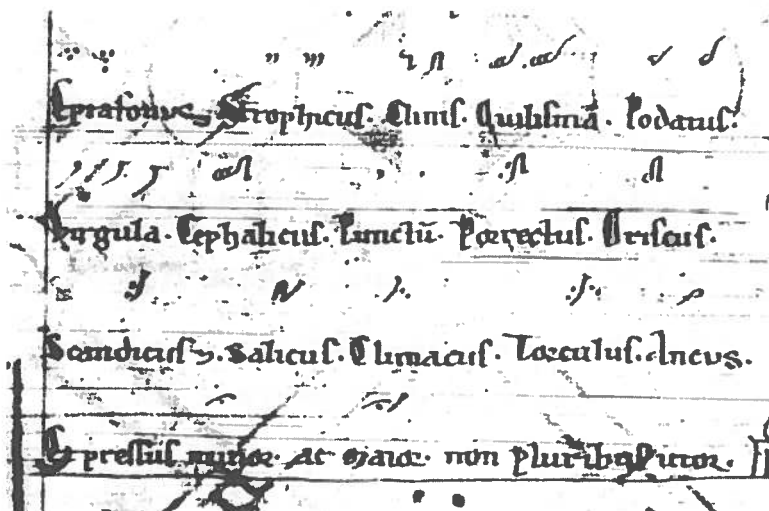 Epiafonus. Strophicus. Clinis. Quilisma. Podatus.
Virgula. Cephalicus. Punctū. Porrectus. Oriscus.
Scandicus. Salicus. Climacus. Torculus. Ancus.
Et pressus minor ac maior. non pluribus utor.